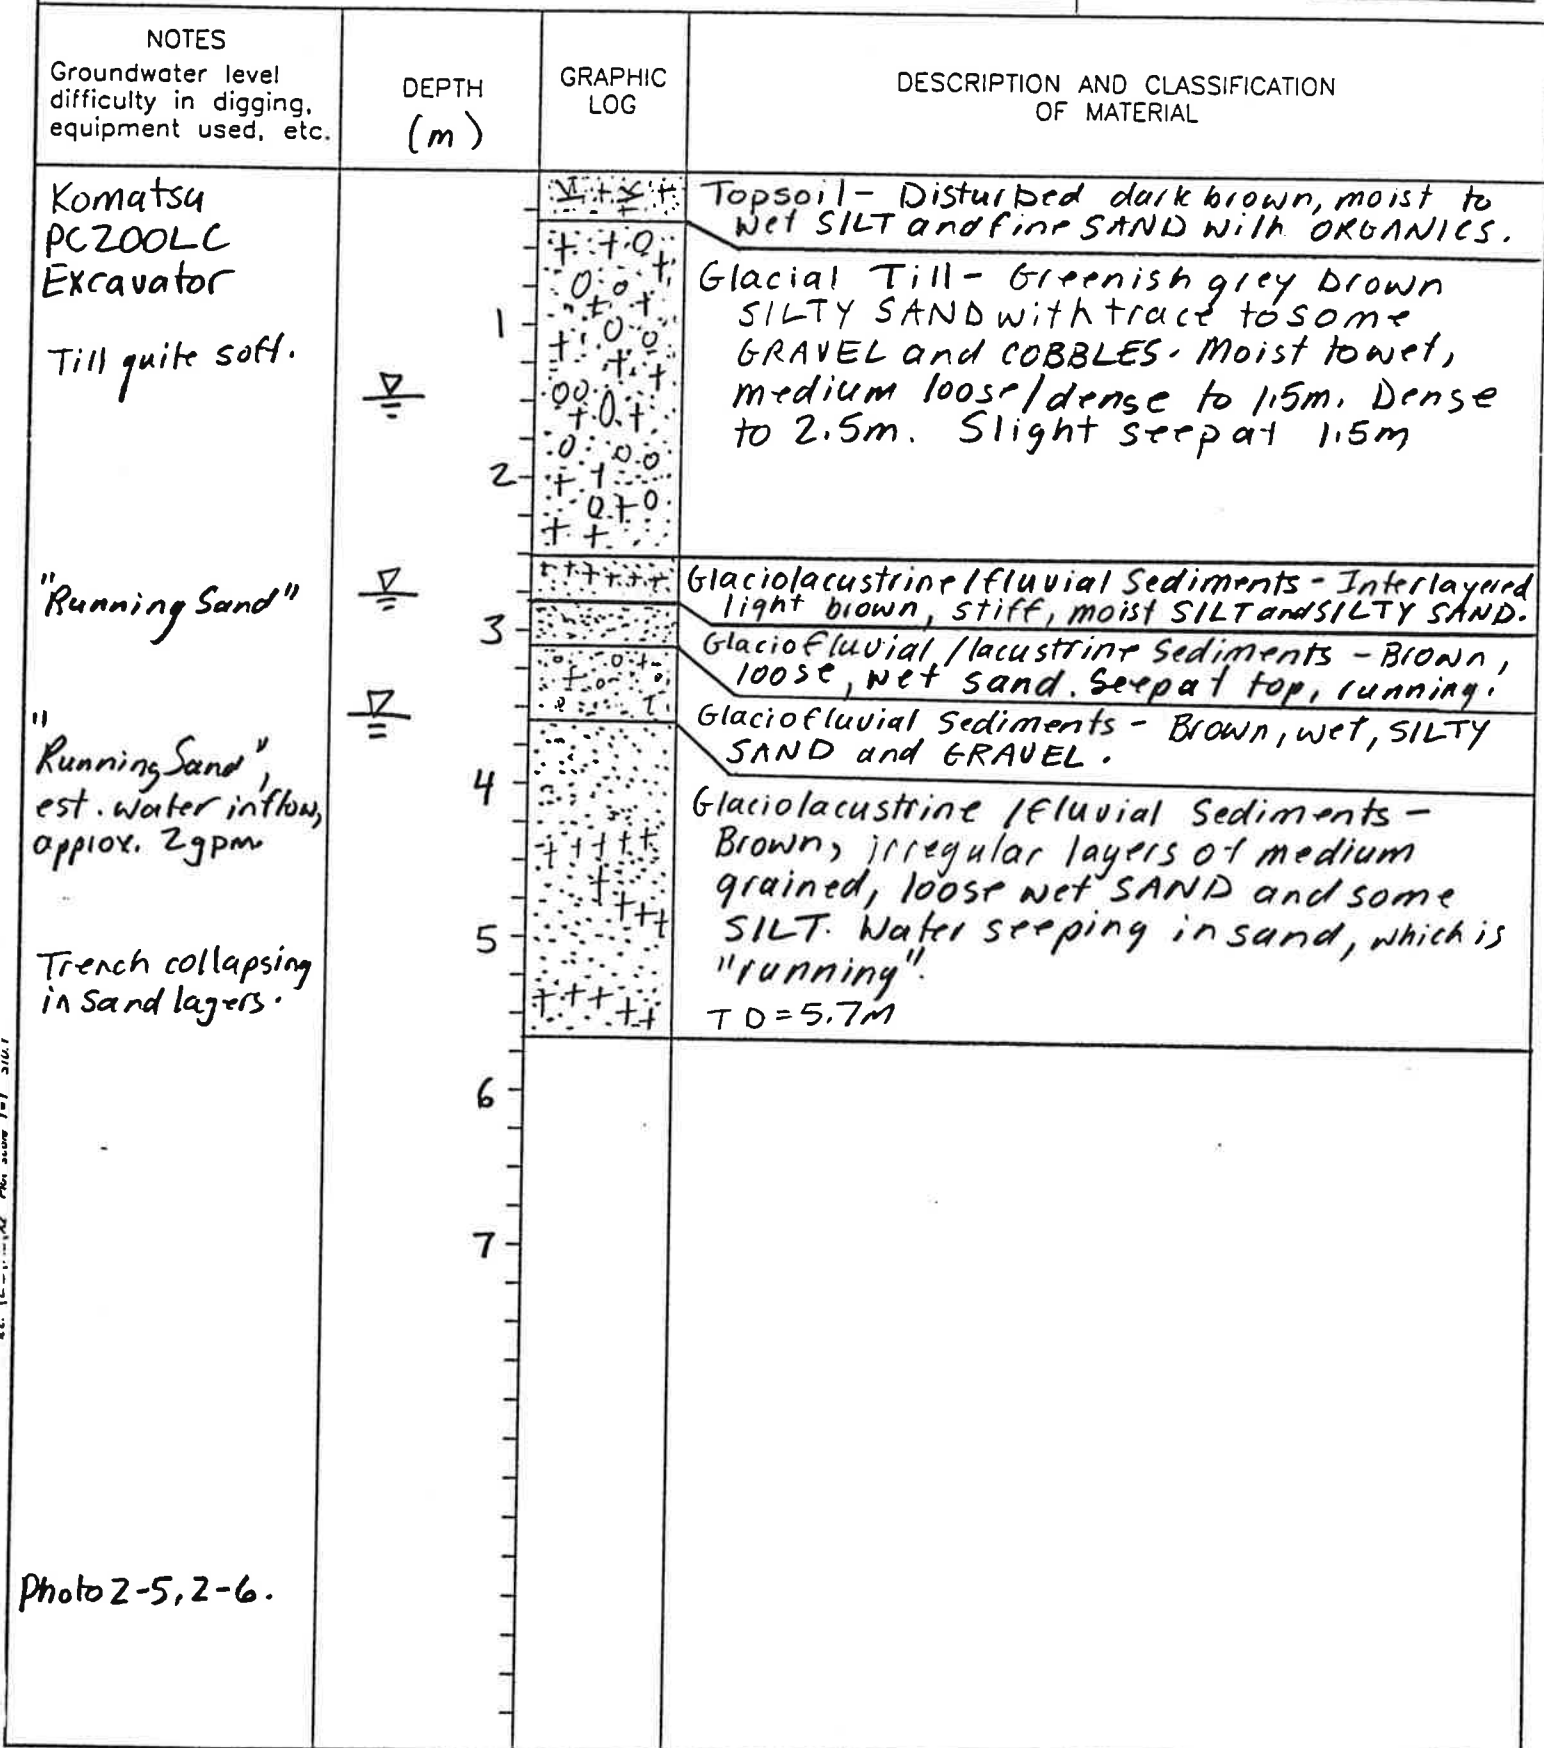 NOTES
Groundwater level
difficulty in digging,
equipment used, etc.
DEPTH
(m)
GRAPHIC
LOG
DESCRIPTION AND CLASSIFICATION
OF MATERIAL
Komatsu
PC200LC
Excavator
Till quite soft.
"Running Sand"
"Running Sand",
est. water inflow,
approx. 2gpm
Trench collapsing
in Sand layers.
Photo 2-5, 2-6.
1
2
3
4
5
6
7
Topsoil - Disturbed dark brown, moist to
wet SILT and fine SAND with ORGANICS.
Glacial Till - Greenish grey brown
SILTY SAND with trace to some
GRAVEL and COBBLES. Moist to wet,
medium loose/dense to 1.5m. Dense
to 2.5m. Slight seep at 1.5m
Glaciolacustrine/fluvial Sediments - Interlayered
light brown, stiff, moist SILT and SILTY SAND.
Glaciofluvial/lacustrine Sediments - Brown,
loose, wet sand. Seep at top, running.
Glaciofluvial Sediments - Brown, wet, SILTY
SAND and GRAVEL.
Glaciolacustrine/fluvial Sediments -
Brown, irregular layers of medium
grained, loose wet SAND and some
SILT. Water seeping in sand, which is
"running".
TD=5.7M